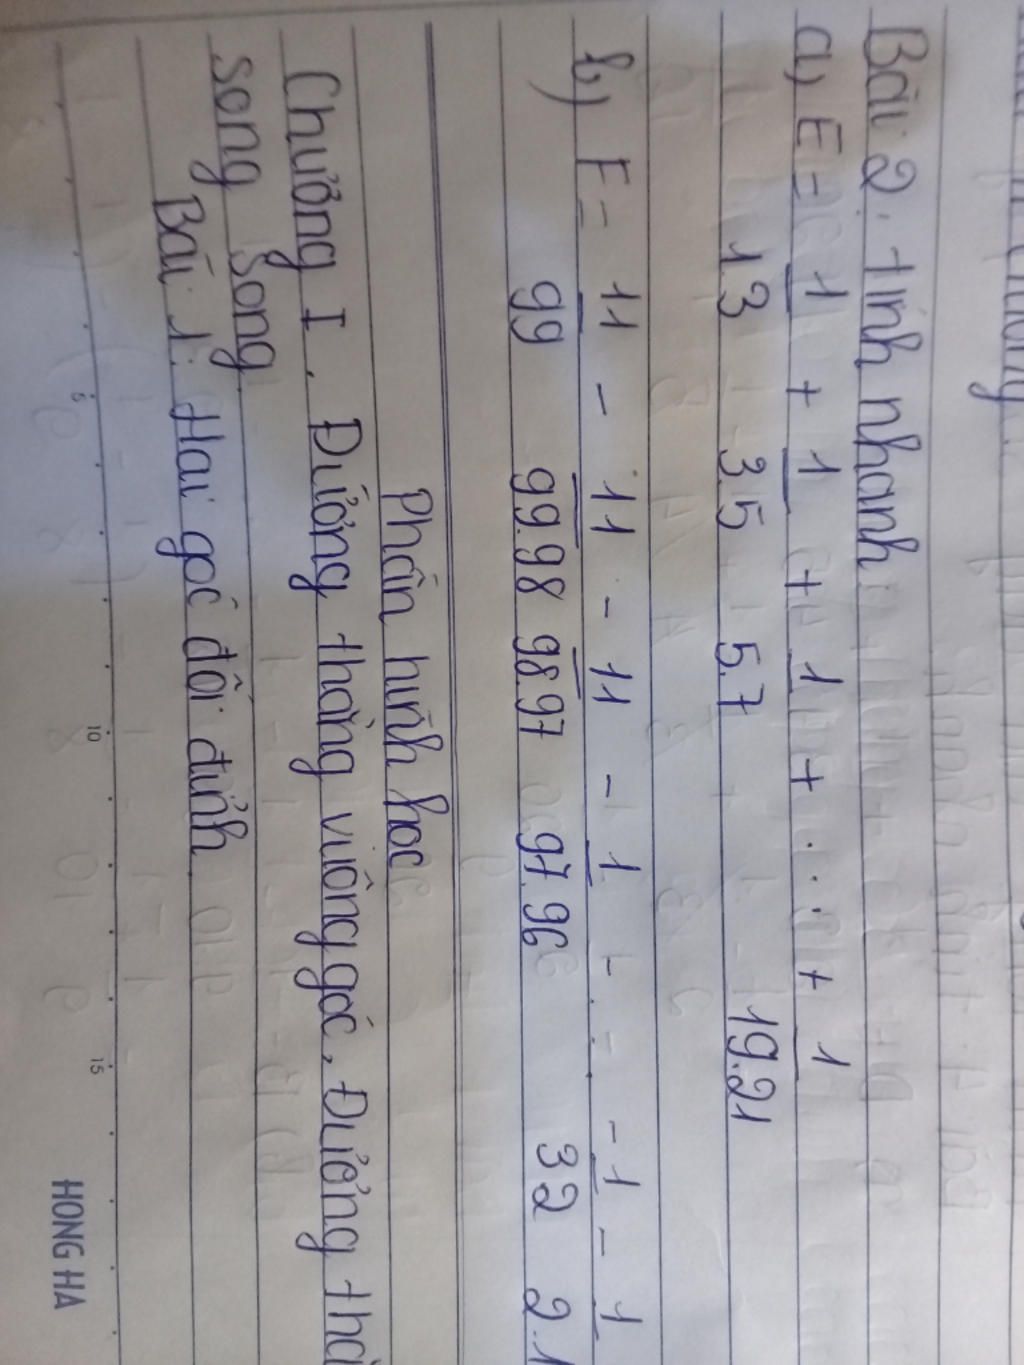 Bài 2: tính nhanh
a, E = 1 + 1 + 1 + ... + 1
1.3 3.5 5.7 19.21
b, F = 11 - 11 - 11 - 1 - ... - 1 - 1
99 99.98 98.97 97.96 3 2 2.1
Phần hình học
Chương I. Đường thẳng vuông góc, Đường
song song
Bài 1: Hai góc đối đỉnh
5 10 15
HONG HA